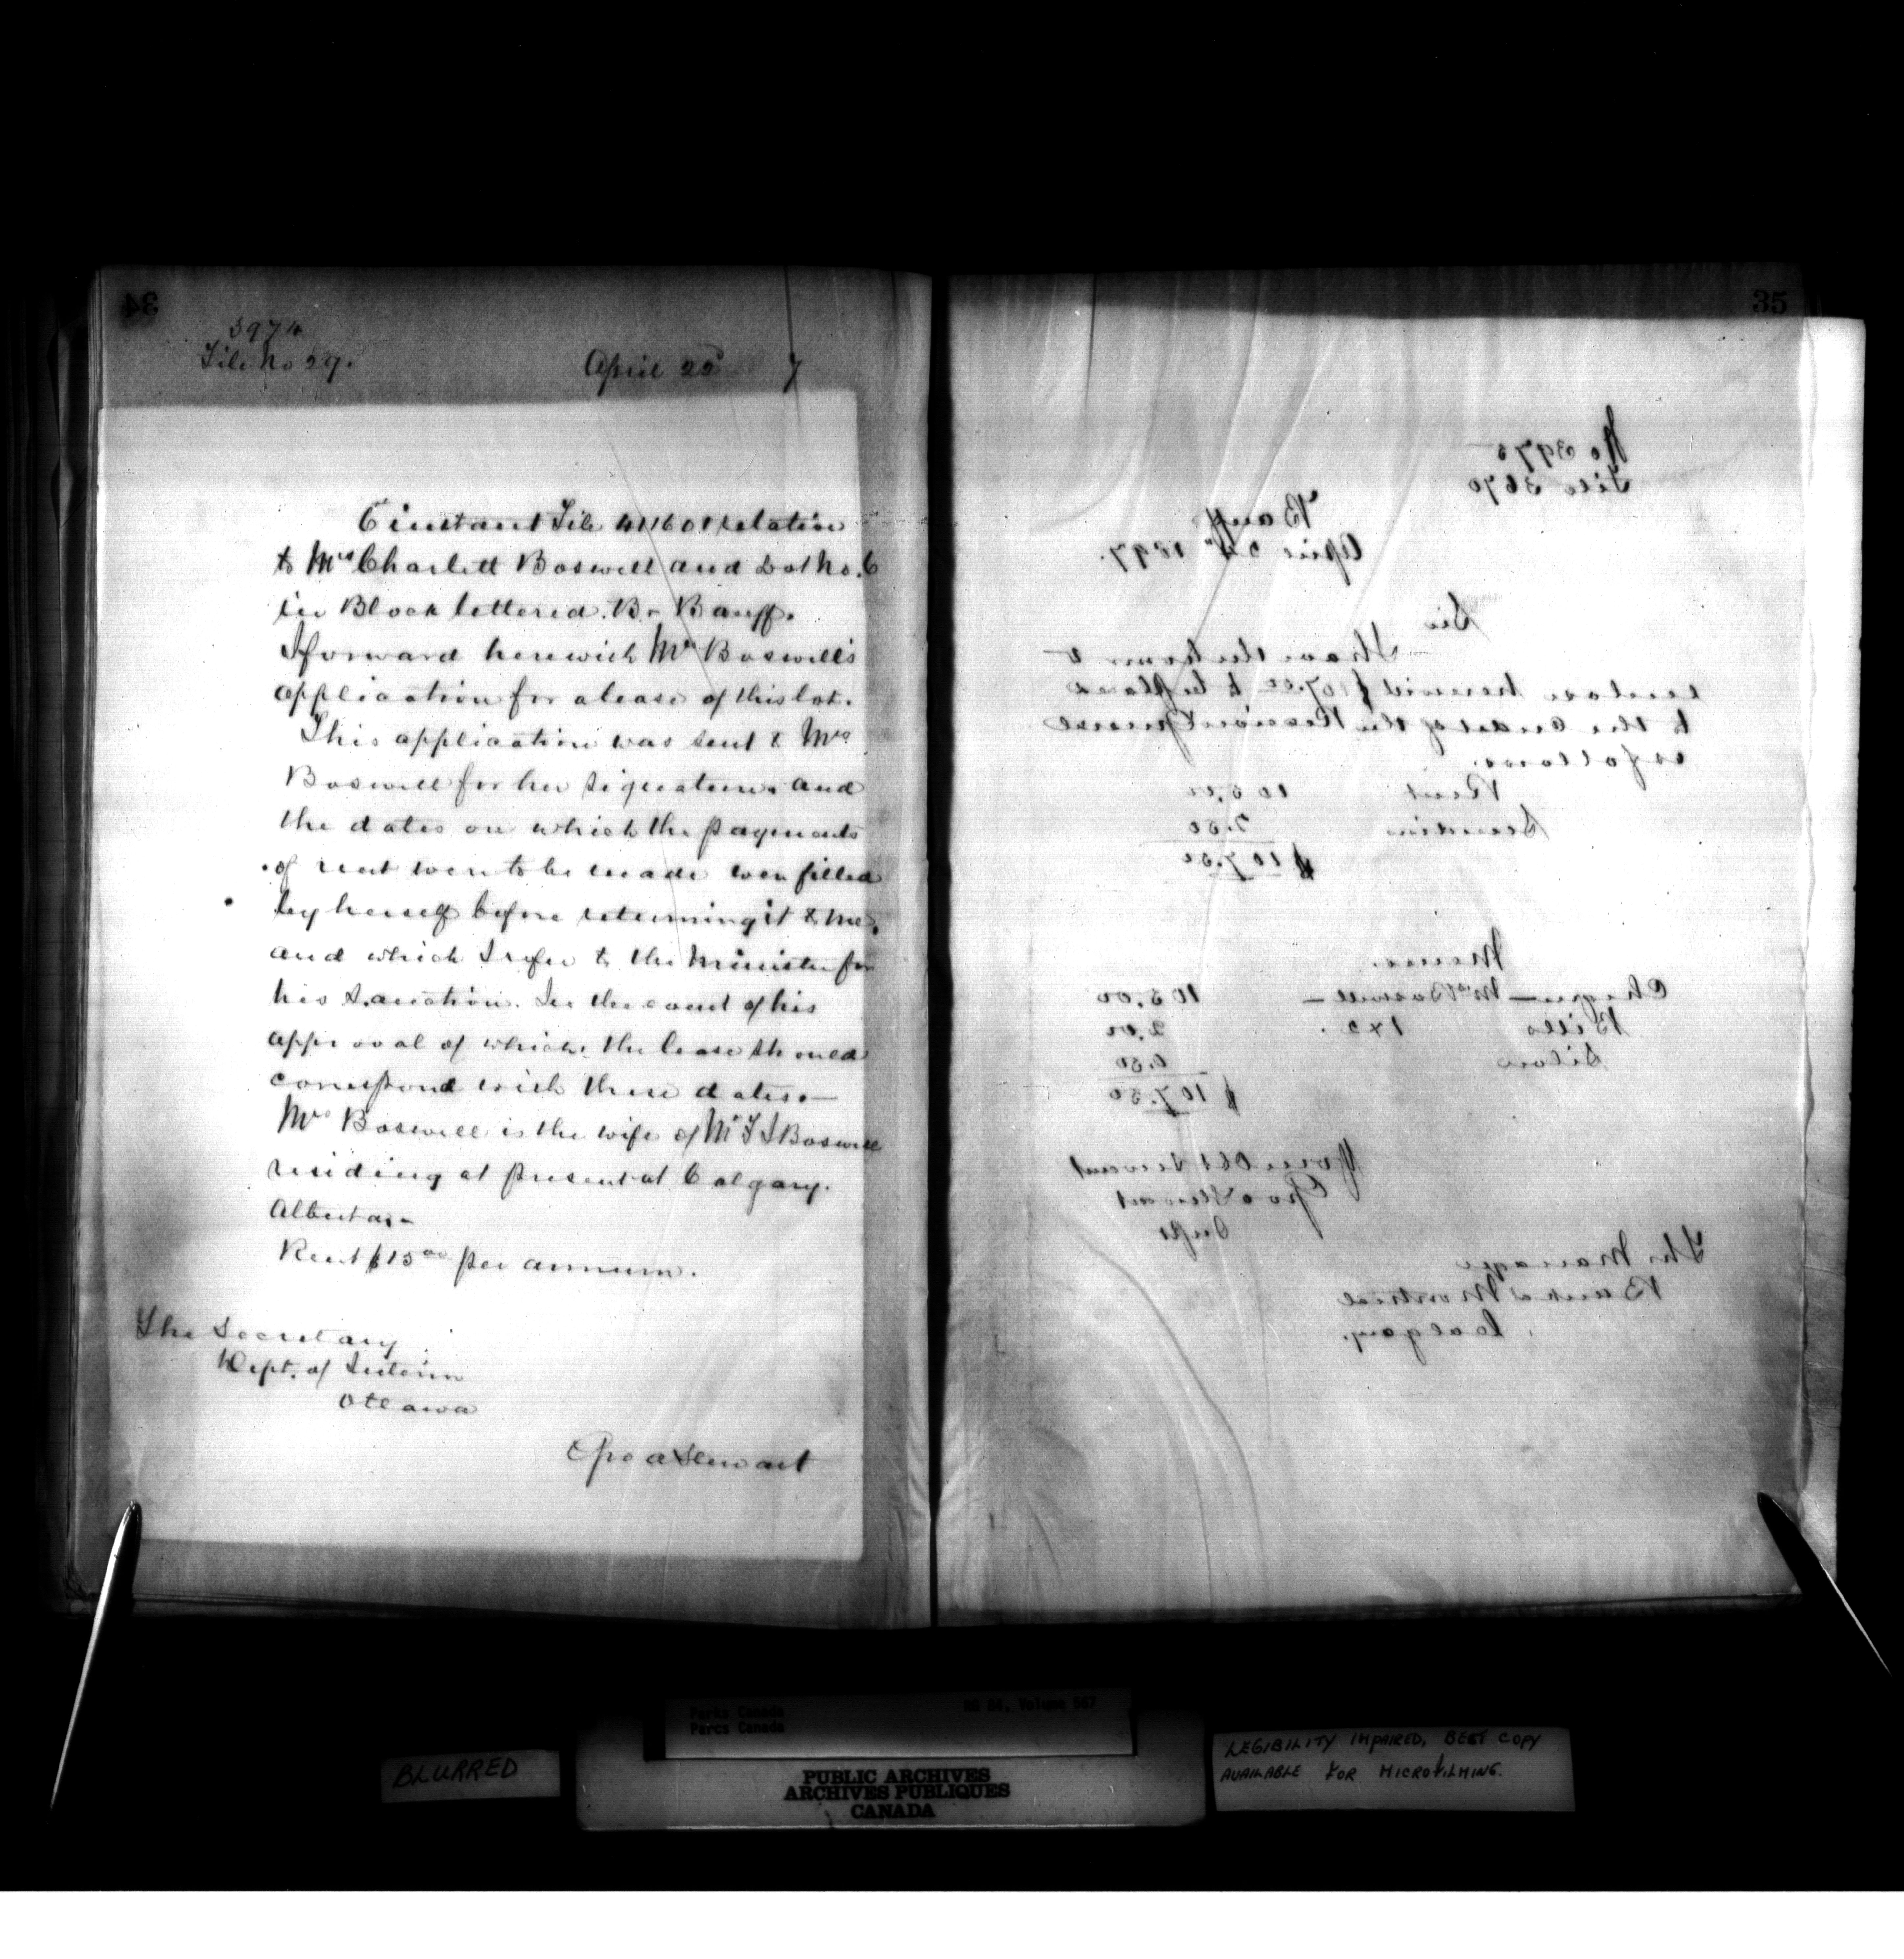 34
3974
File No 29.
April 22d 7
6 instant File 41160 relation
to Mrs Charlett Boswell and Lot No. 6
in Block lettered. B - Banff.
I forward herewith Mrs Boswell's
application for a lease of this lot.
This application was sent to Mrs
Boswell for her signature. and
the dates on which the payments
of rent were to be made were filled
by herself before returning it to me,
and which I refer to the Minister for
his sanction. In the event of his
approval of which the lease should
correspond with these dates. —
Mrs Boswell is the wife of Mr Boswell
residing at present at Calgary.
Alberta. -
Rent $15 00 per annum.
The Secretary
Dept. of Interior
Ottawa
Geo A Stewart
35
No 3975
File 3670
Banff
April 24th 1897.
Sir
I have the honour to
enclose herewith $107.50 to be placed
to the credit of the Receiver General
as follows.
Rent 105.00
Sundries 2.50
$107.50
Memo.
Cheque — Mrs Boswell — 105.00
Bills 1x2. 2.00
Silver 0.50
$107.50
Your Obt Servant
Geo A Stewart
Supt
The Manager
Bank of Montreal
Calgary.
Parks Canada
Parcs Canada
RG 84, Volume 567
BLURRED
PUBLIC ARCHIVES
ARCHIVES PUBLIQUES
CANADA
LEGIBILITY IMPAIRED, BEST COPY
AVAILABLE FOR MICROFILMING.